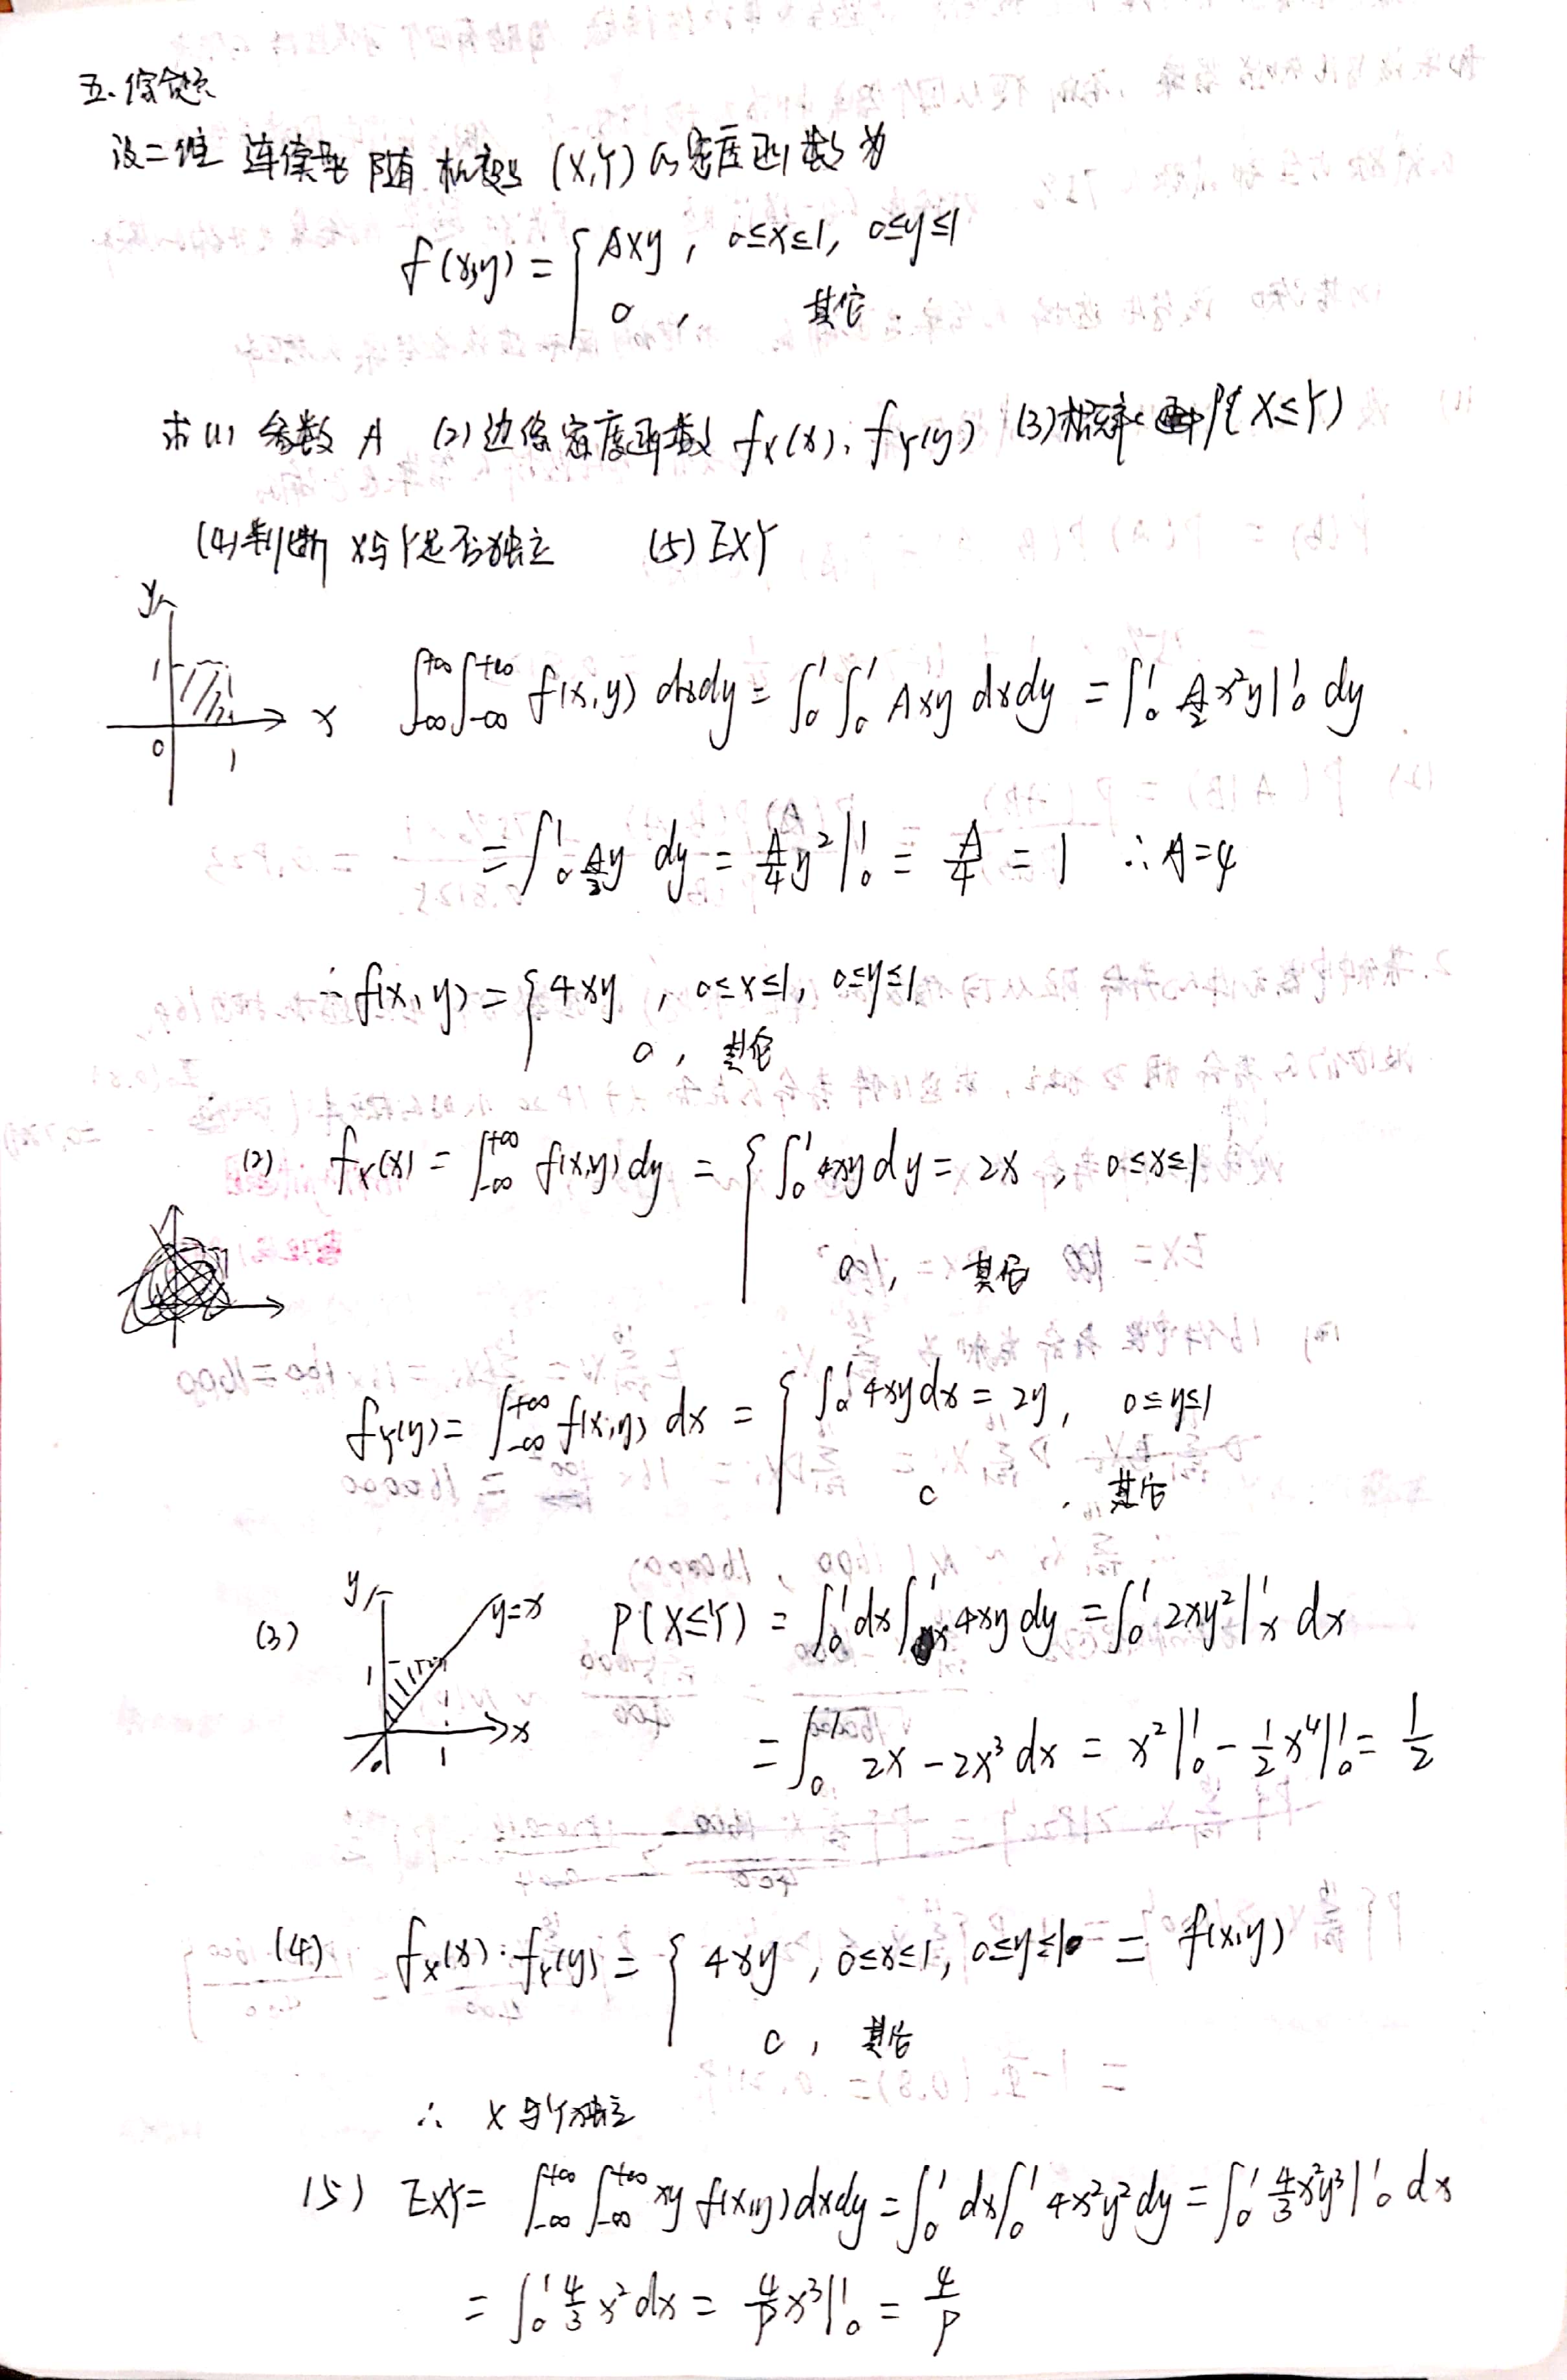 五、综合题
设二维连续型随机变量 (X,Y) 的密度函数为
f(x,y) = { Axy , 0≤x≤1, 0≤y≤1
0 , 其它
求(1) 参数 A (2) 边缘密度函数 fX(x), fY(y) (3) 概率 P{X≤Y)
(4) 判断 X与Y是否独立 (5) EXY
y
1
x
0 1
∫_{-∞}^{+∞}∫_{-∞}^{+∞} f(x,y) dxdy = ∫_0^1 ∫_0^1 Axy dxdy = ∫_0^1 A/2 x²y|_0^1 dy
= ∫_0^1 A/2 y dy = A/4 y²|_0^1 = A/4 = 1 ∴ A=4
∴ f(x,y) = { 4xy , 0≤x≤1, 0≤y≤1
0 , 其它
(2) fX(x) = ∫_{-∞}^{+∞} f(x,y) dy = { ∫_0^1 4xy dy = 2x , 0≤x≤1
0 , 其它
fY(y) = ∫_{-∞}^{+∞} f(x,y) dx = { ∫_0^1 4xy dx = 2y , 0≤y≤1
0 , 其它
(3) y y=x
1
0 1 x
P(X≤Y) = ∫_0^1 dx ∫_x^1 4xy dy = ∫_0^1 2xy²|_x^1 dx
= ∫_0^1 2x - 2x³ dx = x²|_0^1 - 1/2 x⁴|_0^1 = 1/2
(4) fX(x)·fY(y) = { 4xy , 0≤x≤1, 0≤y≤1 = f(x,y)
0 , 其它
∴ X与Y独立
(5) EXY = ∫_{-∞}^{+∞} ∫_{-∞}^{+∞} xy f(x,y) dxdy = ∫_0^1 dx ∫_0^1 4x²y² dy = ∫_0^1 4/3 x²y³|_0^1 dx
= ∫_0^1 4/3 x² dx = 4/9 x³|_0^1 = 4/9